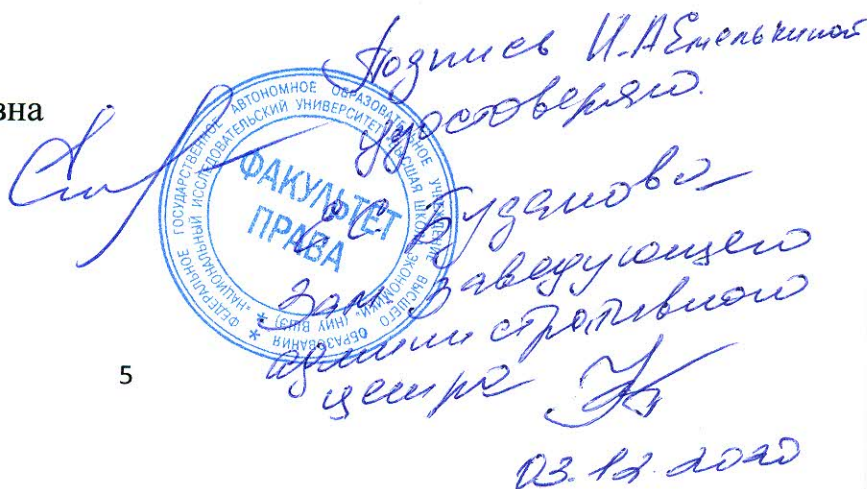 Подпись И.А Емелькиной
зна
удостоверяю.
ФЕДЕРАЛЬНОЕ ГОСУДАРСТВЕННОЕ АВТОНОМНОЕ ОБРАЗОВАТЕЛЬНОЕ УЧРЕЖДЕНИЕ ВЫСШЕГО ОБРАЗОВАНИЯ
"НАЦИОНАЛЬНЫЙ ИССЛЕДОВАТЕЛЬСКИЙ УНИВЕРСИТЕТ "ВЫСШАЯ ШКОЛА ЭКОНОМИКИ" (НИУ ВШЭ)
ФАКУЛЬТЕТ
ПРАВА
Буданова
Зам. Заведующего
административного
центра
5
03.12.2020